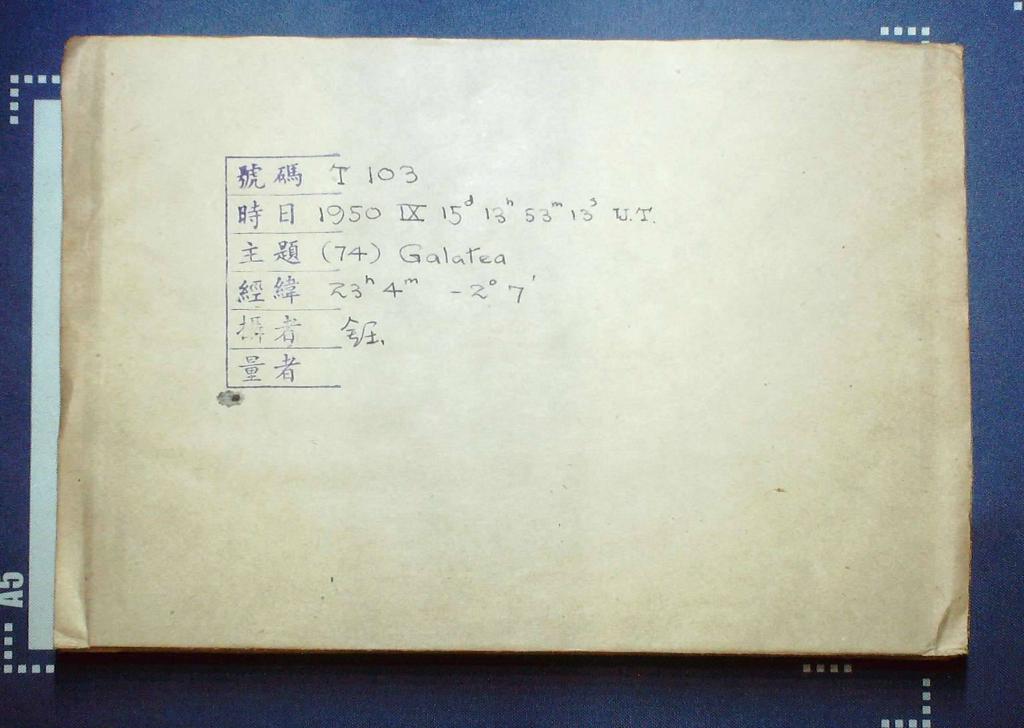 號碼 T 103
時日 1950 IX 15ᵈ 13ʰ 53ᵐ 13ˢ U.T.
主題 (74) Galatea
經緯 23ʰ 4ᵐ -2° 7'
攝者
量者
A5